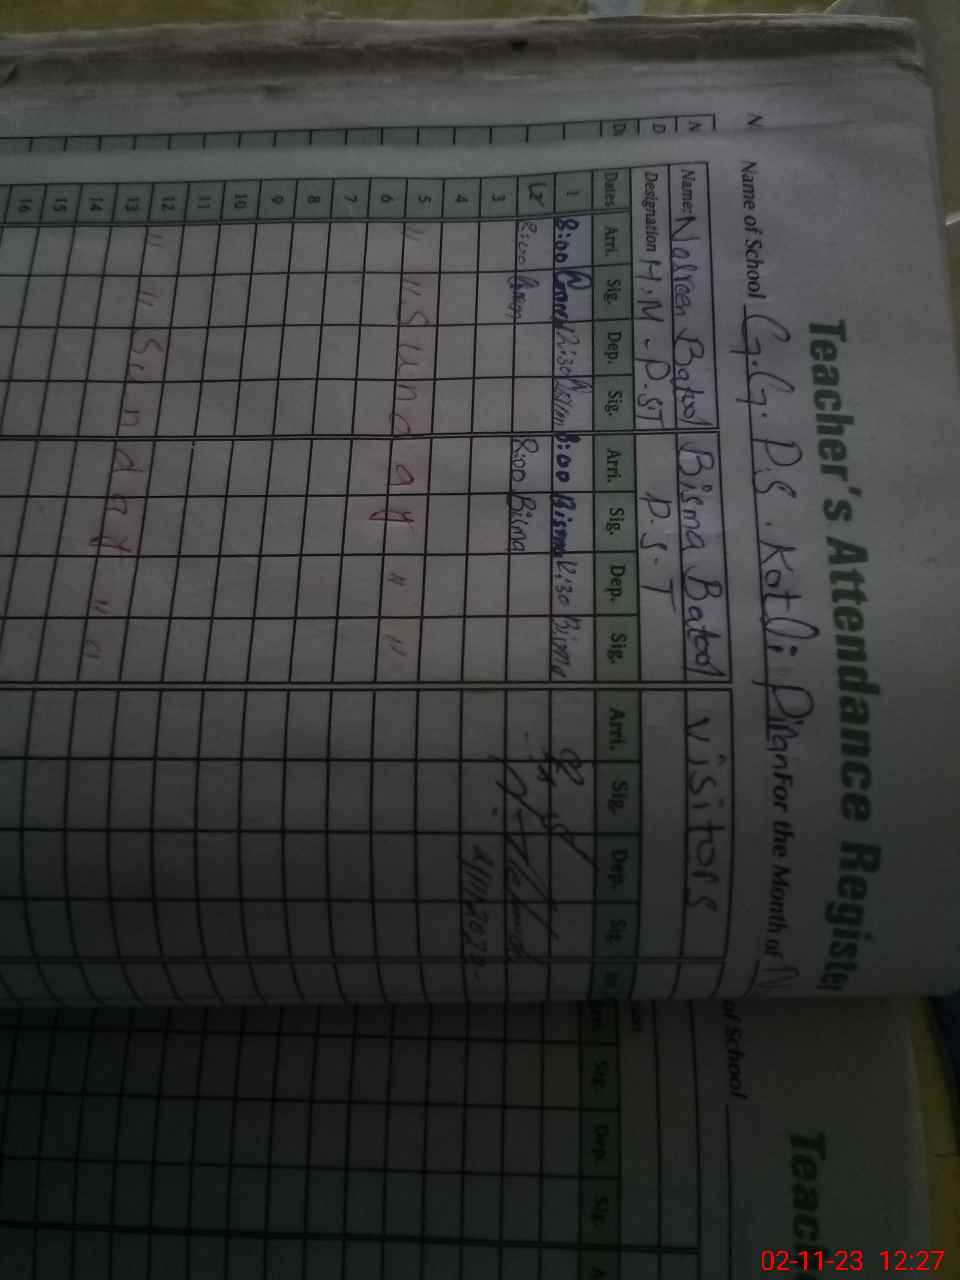 Teacher's Attendance Register
Name of School G.G.P.S. Kotli Piran For the Month of N
Name: Nasreen Batool Bisma Batool Visitors
Designation H.M - P.ST P.S.T
Dates Arri. Sig. Dep. Sig. Arri. Sig. Dep. Sig. Arri. Sig. Dep. Sig.
1 8:00 12:30 8:00 Bisma 12:30 Bisma
2 8:00 8:00 Bisma
3
4 2/11/2023
5 " " Sunday " "
6
7
8
9
10
11
12 " " Sunday " "
13
14
15
16
N
D
Da
of School
Sig. Dep. Sig. A
Teach
02-11-23 12:27